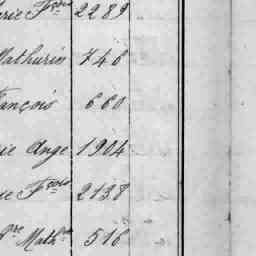 rie Fçois 2289
Mathurin 746
rançois 660
rie Ange 1904
ie Fçois 2138
Pre Math 516